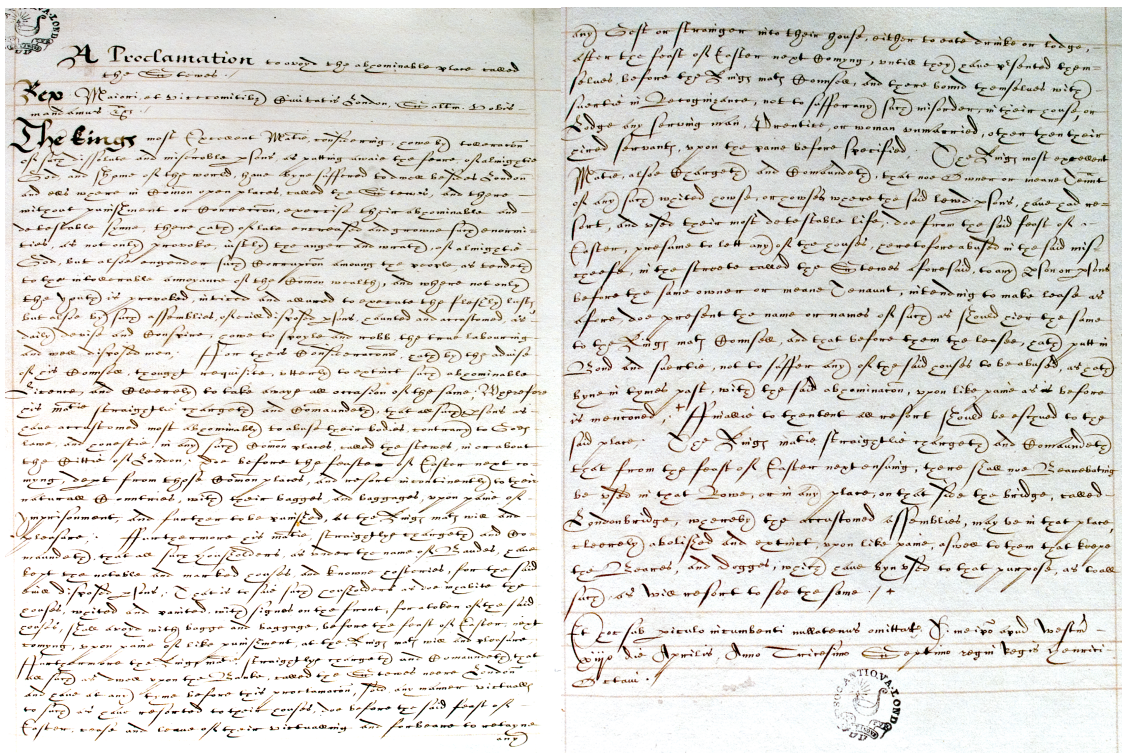 A Proclamation to avoyd the abominable place called
the Stewes
Rex Maiori et vicecomitibz Civitatis London, Saltm. Vobis
mandamus &c
The kings most Excellent Matie, considering, howe by toleracon
of such dissolute and miserable psons, as putting awaie the feare of almightie
God and shame of the world, have byne suffred to dwell besides London
and ells where in Comon open places, called the Stewes, and there
without punishment or Correccon, exercise their abominable and
detestable synne, there hath of late encreased and growne such enormi-
ties, as not only provoke iustly the anger and wrath of almightie
God, but also engender such Corrupcon among the people, as tendeth
to the intollerable annoyance of the Comon wealth, and where not only
the youth is provoked, inticed and allured to execute the fleshly lusts
but also by such assemblies of evill disposed psons, haunted and accustomed, as
daily devise and Conspire, howe to spoyle and robb, the true labouring
and well disposed men; For theis Consideracons, hath by the advise
of his Counsell, thought requisite, utterly to extinct such abominable
Licence, and Cleerely to take away all occasion of the same. Wherefore
his matie straightlie chargeth and Comaundeth, that all such psons as
have accustomed most abominably to abuse their bodies, contrary to Gods
lawe, and honestie, in any such Comon places, called the stewes, in or about
the Cittie of London; Doe before the feaste of Easter next co-
myng, dept from those Comon places, and resort incontinently to their
naturall Countries, with their bagges, and baggages, upon paine of
Imprisonment, and further to be punished, at the Kings mats will and
pleasure; Furthermore his matie, straightlie chargeth and Co-
maundeth, that all such housholders, as under the name of Baudes, have
kept the notable and marked houses, and knowne hosteries, for the said
evill disposed psons; That is to saie such housholders as doe inhabite the
houses, whited and painted, with signes on the front, for a token of the said
houses, shall avoyd with bagge and baggage, before the feast of Easter, next
comyng, upon paine of like punishment, at the Kings mats will and pleasure
Furthermore the Kings matie straightlie chargeth and Comaundeth that
all such as dwell upon the Banke, called the Stewes neere London
and have at any tyme before this proclamacon, sold any maner victualls
to such as have resorted to their houses, doe before the said feast of
Easter, cease and leave of their victualling and forbeare to retayne
any
any Gost or straunger into their house, either to eate drinke or lodge,
after the feast of Easter next Comyng, untill they have psented them-
selves before the Kings mats Counsell, and there bound themselves with
suertie in Recognizance, not to suffer any such misorder, in their house, or
Lodge any serving man, Prentice, or woman unmarried, other then their
hired servants, upon the paine before specified. The Kings most excellent
Matie, also Chargeth and Comaundeth, that noe Owner or meane Tennt
of any such whited house, or howses where the said lewd psons, have had re-
sort, and used their most detestable life, doe from the said feast of
Easter, presume to lett any of the houses, heretofore abused in the said mis-
cheefe, in the streete called the Stewes aforesaid, to any pson or psons
before the same owner or meane Tenaunt, intending to make lease as
afore, doe present the name or names of such as should hier the same
to the Kings mats Counsell, and that before them the leasee, hath putt in
Bond and suertie, not to suffer any of the said houses to be abused, as hath
byne in tymes past, with the said abominacon, upon like paine as is before
is menconed / + Finallie to thentent all resort should be eschued to the
said place; The Kings matie, straightlie chargeth and Comaundeth
that from the feast of Easter next ensuing, there shall noe Bearebating
be used in that Rowe, or in any place, on that side the bridge, called
Londonbridge, whereby the accustomed assemblies, may be in that place,
cleerely abolished and extinct, upon like paine, aswell to them that keepe
the Beares, and dogges, which have byn used to that purpose, as to all
such as will resort to see the same; / +
Et hoc sub piculo incumbenti nullatenus omittatis. T. me ipo apud Westm
xiijo die Aprilis, Anno Tricesimo Septimo regni Regis Henrici
Octavi
SOC·ANTIQVA·LOND